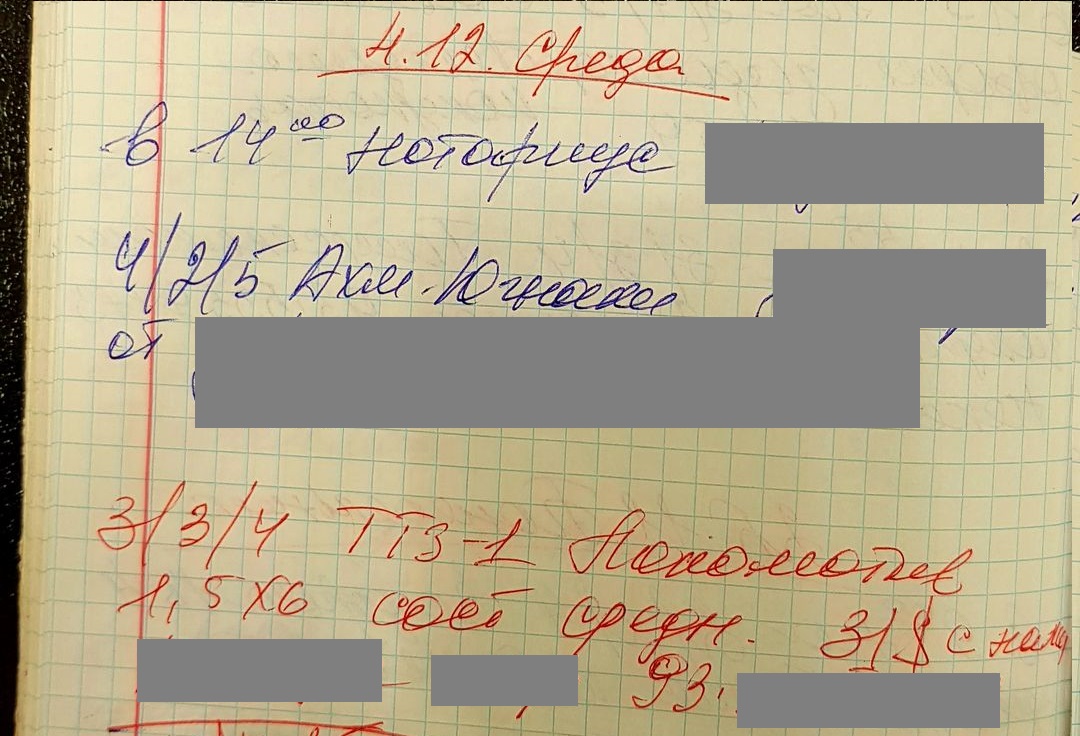 4.12. Среда
в 14⁰⁰ нотариус
4/2/5 Ахм. Югнаки
от
3/3/4 ТТЗ-1 Локомотив
1,5х6 сост средн. 31$ с нами
93.